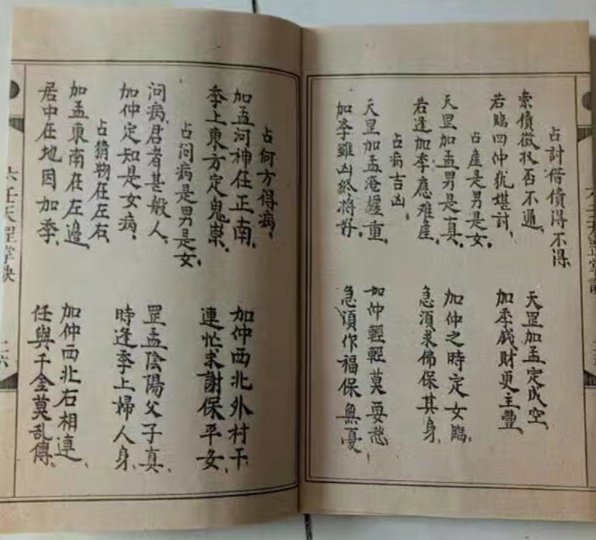 占討借債得不得
索債徵收否不通、天罡加孟定成空、
若臨四仲犹堪討、加季戲財更主豐、
占產是男是女、
天罡加孟男是真、加仲之時定女臨、
若逢加季應难產、急須求佛保其身、
占病吉凶
天罡加孟淹纏重、加仲輕輕莫要愁
加季雖凶終將好、急須作福保無憂、
占何方得病、
加孟河神在正南、加仲西北外村干
季上東方定鬼祟、連忙求謝保平安、
占问病是男是女、
问病君者甚敏人、罡孟陰陽父子真、
加仲定知是女病、時逢季上婦人身、
占猜物在左右、
加孟東南在左邊、加仲西北右相連、
居中在地因加季、任與千金莫乱傳、
六壬天罡掌诀 二六